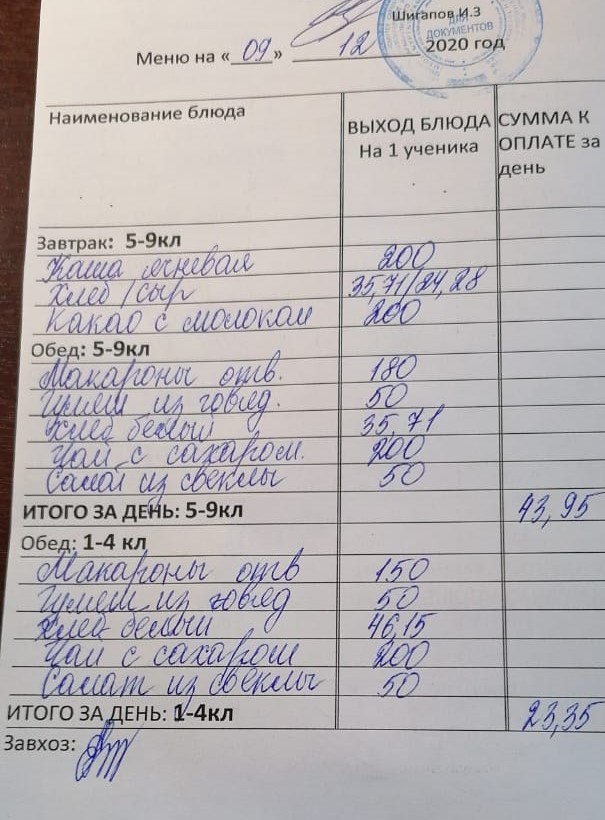 Шигапов И.З
ДЛЯ
ДОКУМЕНТОВ
Меню на « 09 » 12 2020 год
Наименование блюда ВЫХОД БЛЮДА На 1 ученика СУММА К ОПЛАТЕ за день
Завтрак: 5-9кл
Каша ячневая 200
Хлеб / сыр 35,71/24,28
Какао с молоком 200
Обед: 5-9кл
Макароны отв. 180
Гуляш из говяд. 50
Хлеб белый 35,71
Чай с сахаром. 200
Салат из свеклы 50
ИТОГО ЗА ДЕНЬ: 5-9кл 43,95
Обед: 1-4 кл
Макароны отв 150
Гуляш из говяд 50
Хлеб белый 46,15
Чай с сахаром 200
Салат из свеклы 50
ИТОГО ЗА ДЕНЬ: 1-4кл 23,35
Завхоз: